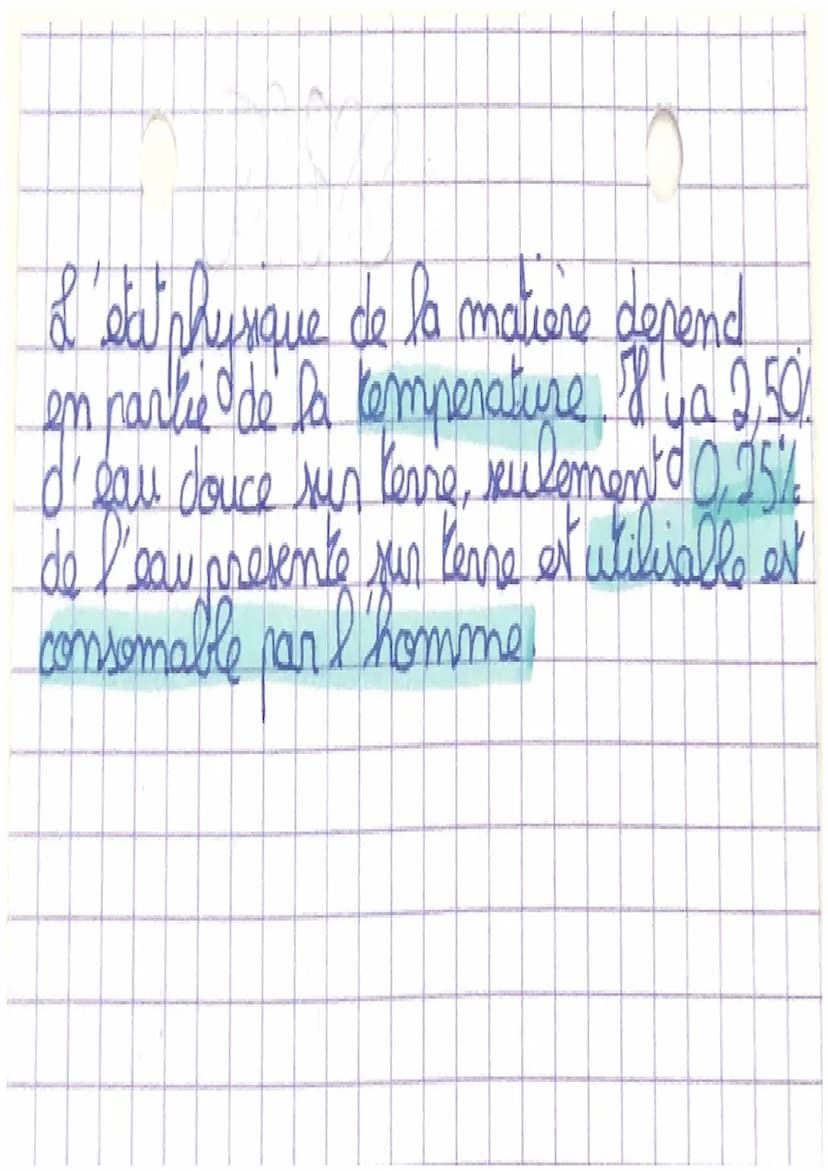 L'état physique de la matière depend
en partie de la temperature. Il y a 2,50%
d'eau douce sur terre, seulement 0,25%
de l'eau presente sur terre est utilisable est
consomable par l'homme.